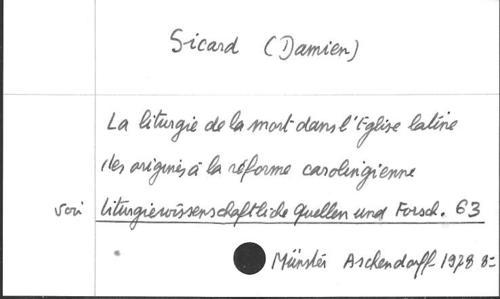 Sicard (Damien)
La liturgie de la mort dans l'Eglise latine
des origines à la réforme carolingienne
voir liturgiewissenschaftliche Quellen und Forsch. 63
Münster Aschendorff 1978 8=